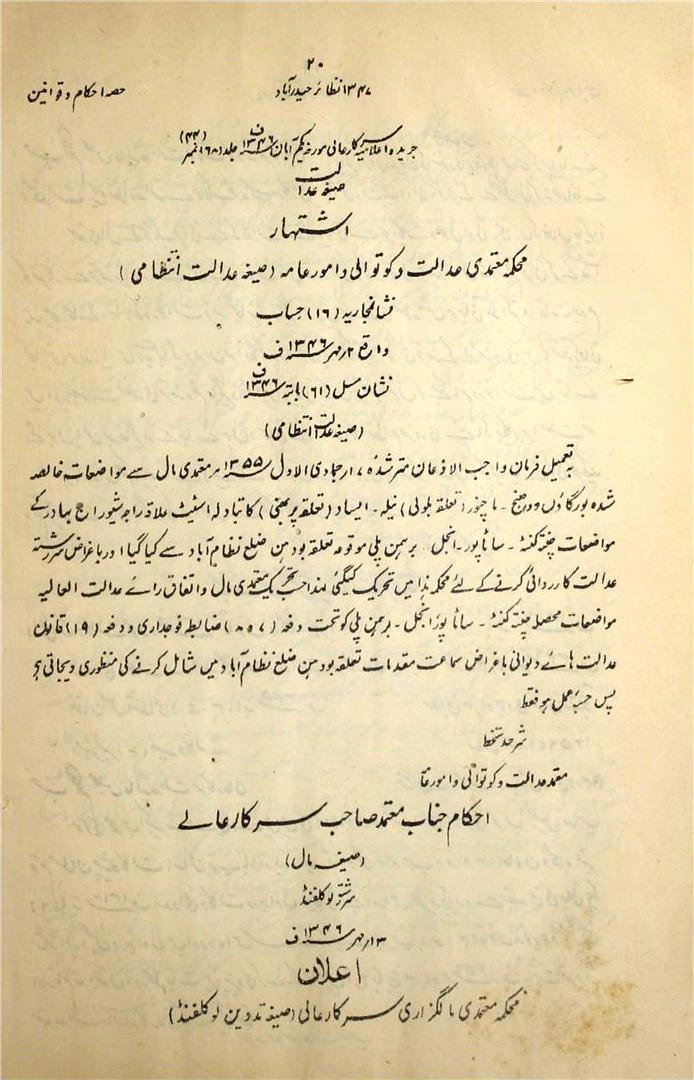 ۲۰
۱۳۴۷ نظائر حیدرآباد
حصہ احکام و قوانین
جریدہ اعلامیہ سرکارعالی مورخہ یکم آبان ۱۳۴۶ ف جلد (۶۸) نمبر (۴۴)
صیغہ عدالت
اشتہار
محکمہ معتمدی عدالت و کوتوالی و امور عامہ (صیغہ عدالت انتظامی)
نشانجاریہ (۱۶) حساب
واقع ۲ مہر ۱۳۴۶ ف
نشان مسل (۶۱) بابتہ ۱۳۴۶ ف
(صیغہ عدالت انتظامی)
بہ تعمیل فرمان واجب الاذعان مترشدہ ۷ ارجمادی الاول ۱۳۵۵ ہر معتمدی مال سے مواضعات خالصہ
شدہ بورگاؤں ودرہنج ۔ ماچنور (تعلقہ بلولی) نیلہ ۔ ایساد (تعلقہ پربھنی) کا تبادلہ اسٹیٹ علاقہ راجہ شیوراج بہادر کے
مواضعات چختہ کنٹہ ۔ ساٹاپور ۔ انجل ۔ برہمن پلی موقوعہ تعلقہ بودہن ضلع نظام آباد سے کیا گیا اور باغراض سررشتہ
عدالت کارروائی کرنے کے لئے محکمہ ہذا میں تحریک کیگئی لہذا حسب تحریک معتمدی مال و اتفاق رائے عدالت العالیہ
مواضعات محصلہ چختہ کنٹہ ۔ ساٹاپور انجل ۔ برہمن پلی کو تحت دفعہ (۷ ۵۰) ضابطہ فوجداری و دفعہ (۱۹) قانون
عدالت ہائے دیوانی باغراض سماعت مقدمات تعلقہ بودہن ضلع نظام آباد میں شامل کرنے کی منظوری دیجاتی ہے
پس حسبہ عمل ہو فقط
شرحدستخط
معتمد عدالت و کوتوالی و امورعامہ
احکام جناب معتمد صاحب سرکارعالے
(صیغہ مال)
سررشتہ لوکلفنڈ
۱۳ مہر ۱۳۴۶ ف
اعلان
محکمہ معتمدی مالگزاری سرکارعالی (صیغہ تدوین لوکلفنڈ)